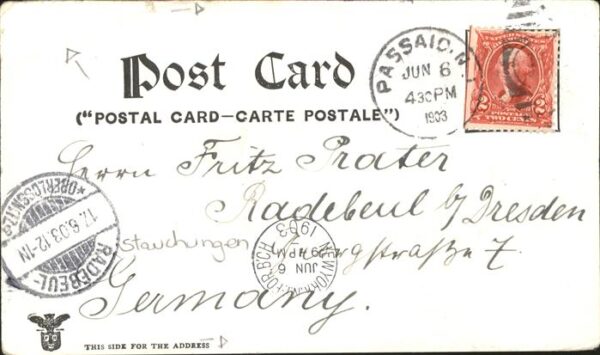 Post Card
("POSTAL CARD—CARTE POSTALE")
PASSAIC, N.J.
JUN 6
4 30 PM
1903
2 2
TWO CENTS
Herrn Fritz Prater
Radebeul b/ Dresden
stauchungen
straße 7.
Germany.
RADEBEUL
17.6.03.12-1N
*OBERLÖSSNITZ*
NEW YORK, N.Y.
JUN 6
PM
1903
THIS SIDE FOR THE ADDRESS